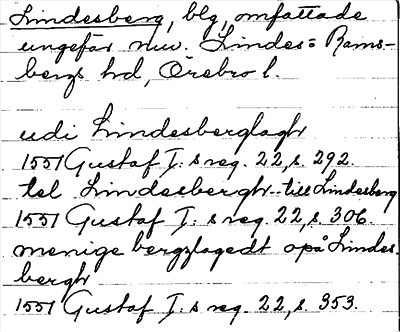 Lindesberg, blg, omfattade
ungefär nuv. Lindes= Rams-
bergs hd, Örebro l.
udi Lindesberglagh
1551 Gustaf I:s reg. 22, s. 292.
tel Lindesbergh till Lindesberg
1551 Gustaf I:s reg. 22, s. 306.
menige bergzlagedt opå Lindes-
bergh
1551 Gustaf I:s reg. 22, s. 353.